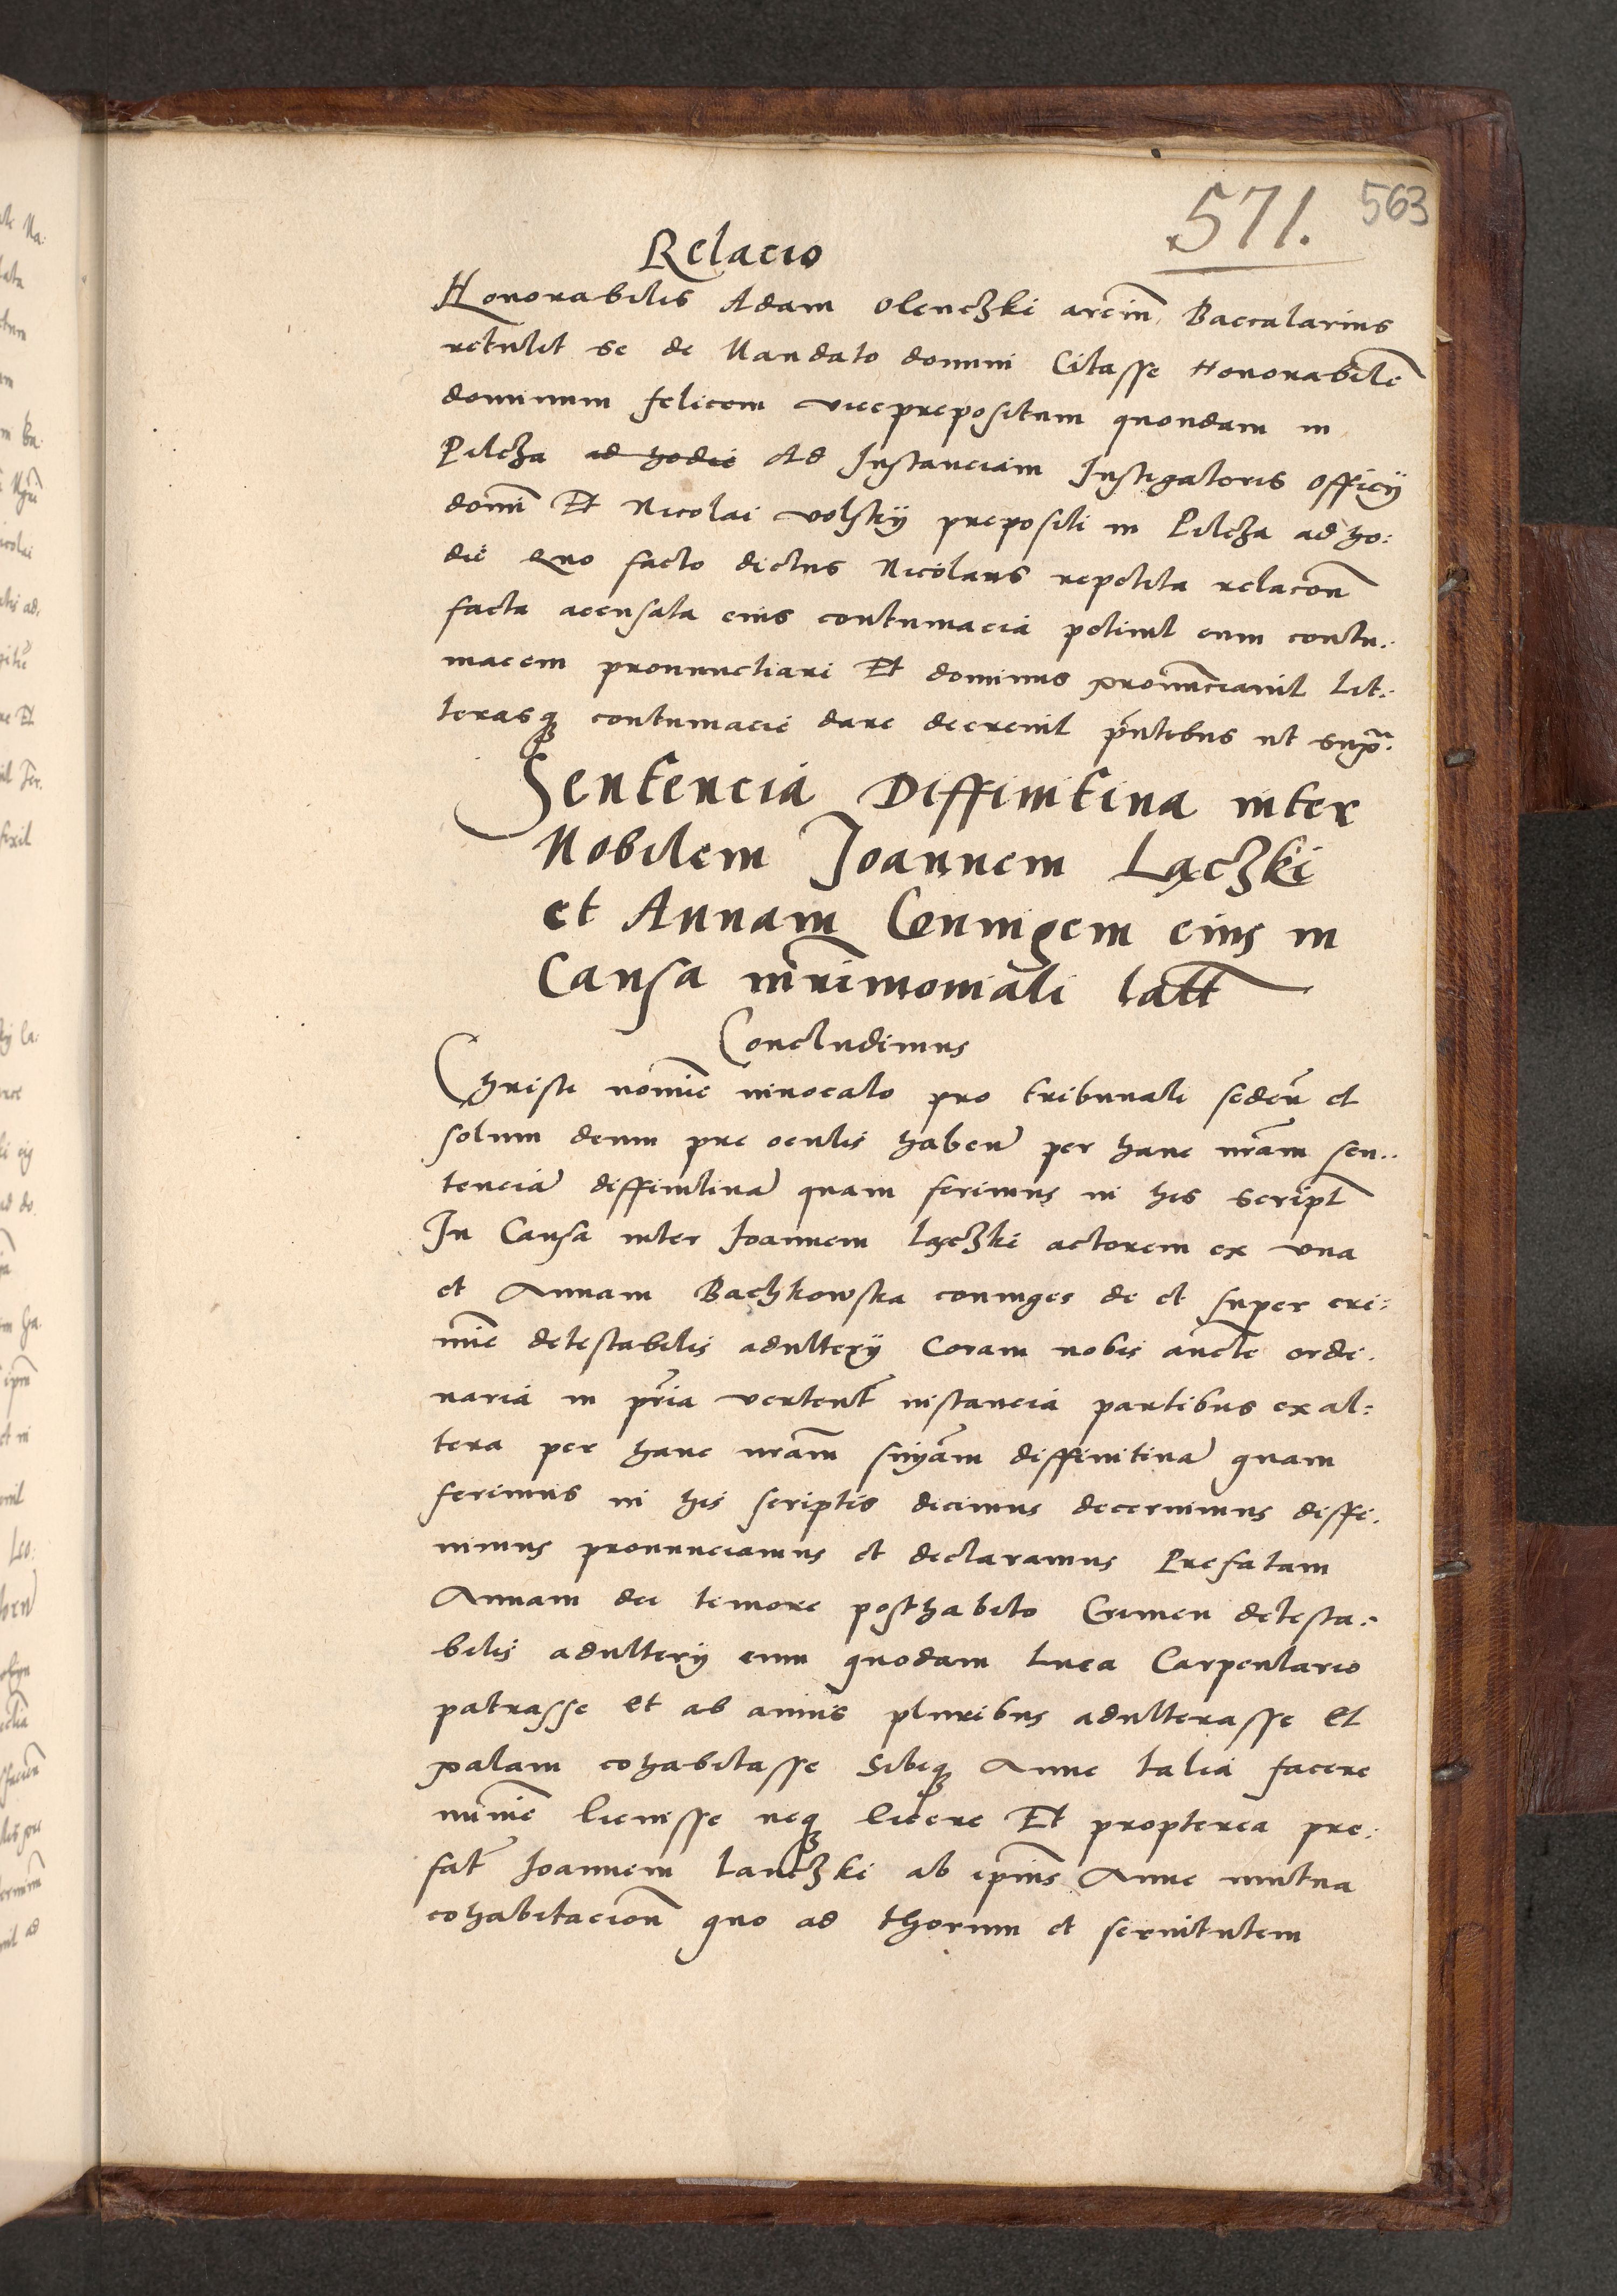 571. 563
Relacio
Honorabilis Adam Olenczki arciũ Baccalarius
retulit se de Mandato domini Citasse Honorabilẽ
dominum felicem viceprepositum quondam in
Pilcza ad hodiẽ Ad Instanciam Instigatoris officÿ
domĩ Et Nicolai volskÿ prepositi in Pilcza ad ho:
diẽ Quo facto dictus Nicolaus repetita relacoñ
facta accusata eius contumacia petiuit eum contu:
macem pronunctiari Et dominus pronũnciauit Lit:
terasqȝ contumacie dare decreuit pñtibus ut supᵃ.
Sentencia Diffinitiua inter
Nobilem Joannem Lączki
et Annam Coniugem eius in
Causa mr̃imoniali latt
Concludimus
Christi nomĩe inuocato pro tribunali sedeñ et
solum deum pre oculis habeñ per hanc nrãm sen:
tenciã diffinitiuã quam ferimus in his script
In Causa inter Joannem Lączki actorem ex vna
et Annam Bachkowska coniuges de et super cri:
mĩe detestabilis adulterÿ Coram nobis aucte ordi:
naria in pr̃ia vertent̃ instancia partibus ex al:
tera per hanc nrãm snÿãm diffinitiuã quam
ferimus in his scriptis dicimus decernimus diffi:
nimus pronunciamus et declaramus Prefatam
Annam dei timore posthabito Crimen detesta:
bilis adulterÿ cum quodam Luca Carpentario
patrasse et ab annis pluribus adulterasse Et
palam cohabitasse Sibiqȝ Anne talia facere
minĩe licuisse neqȝ licere Et propterea pre:
fat̃ Joannem Lanczki ab ipĩus Anne mutua
cohabitacioñ quo ad thorum et seruitutem